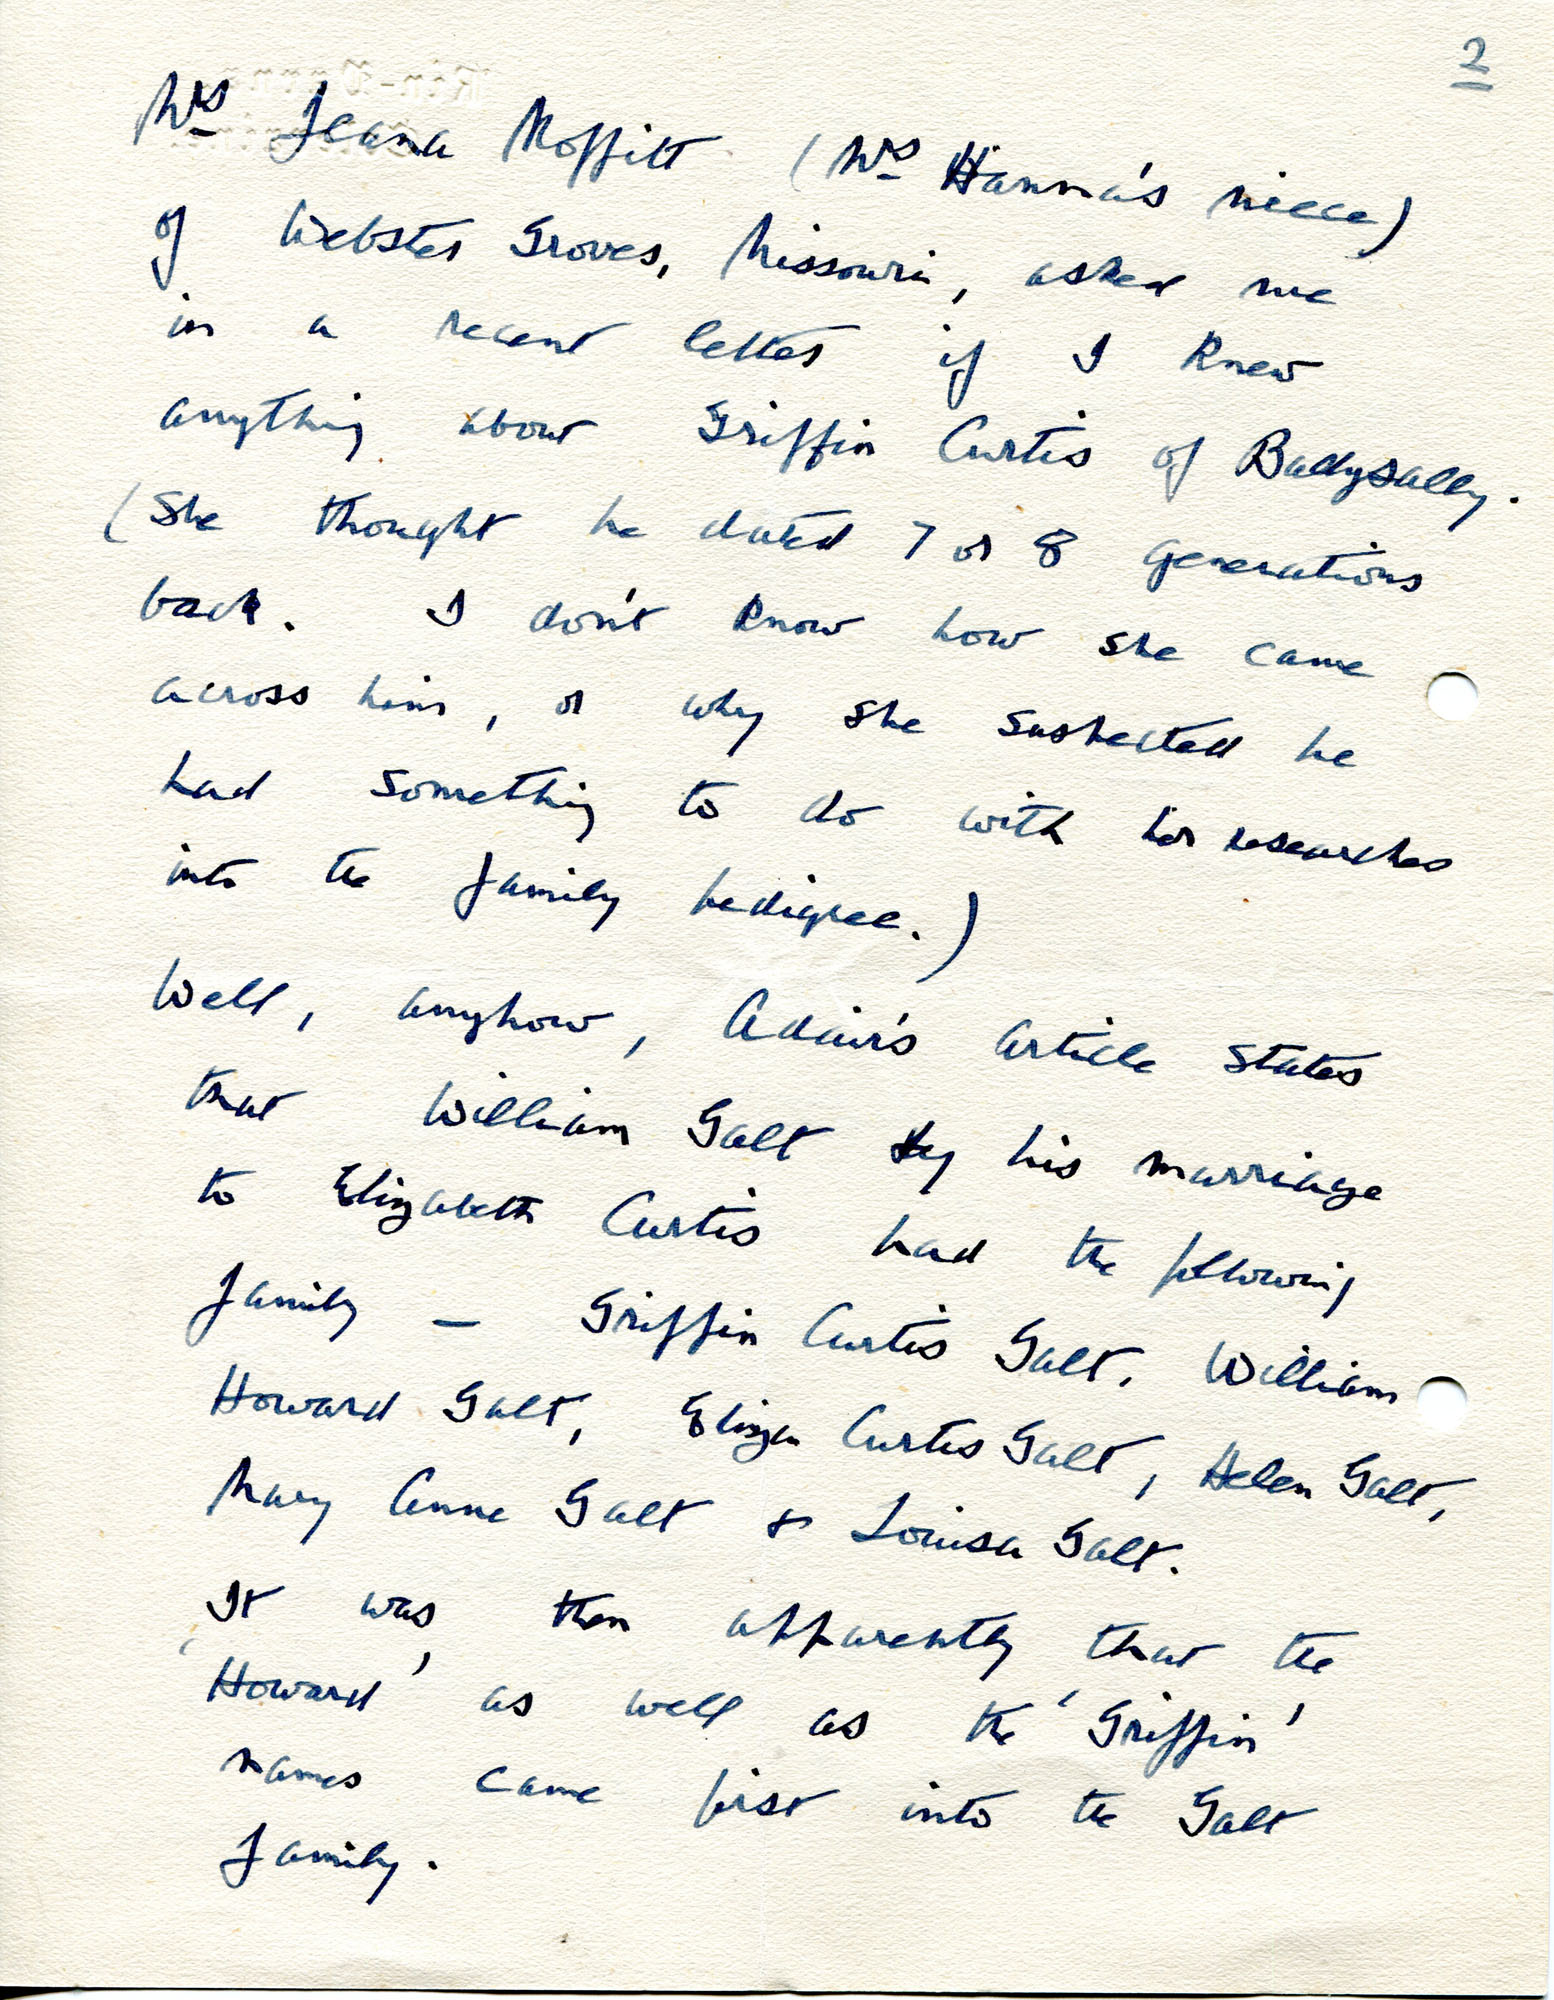 2
Mrs Jeana Moffitt (Mrs Hanna's niece)
of Webster Groves, Missouri, asked me
in a recent letter if I knew
anything about Griffin Curtis of Ballysally.
(She thought he dated 7 or 8 generations
back. I don't know how she came
across him, or why she suspected he
had something to do with her researches
into the family pedigree.)
Well, anyhow, Adair's article states
that William Galt by his marriage
to Elizabeth Curtis had the following
family — Griffin Curtis Galt, William
Howard Galt, Eliza Curtis Galt, Helen Galt,
Mary Anne Galt & Louisa Galt.
It was then apparently that the
'Howard' as well as the 'Griffin'
names came first into the Galt
family.